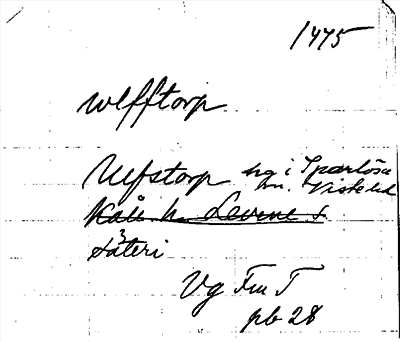 1475
wlfftorp
Ulfstorp hg i Sparlösa
sn. Viste hd
Kåll h. Levene s
säteri
Vg Fm T
pb 28